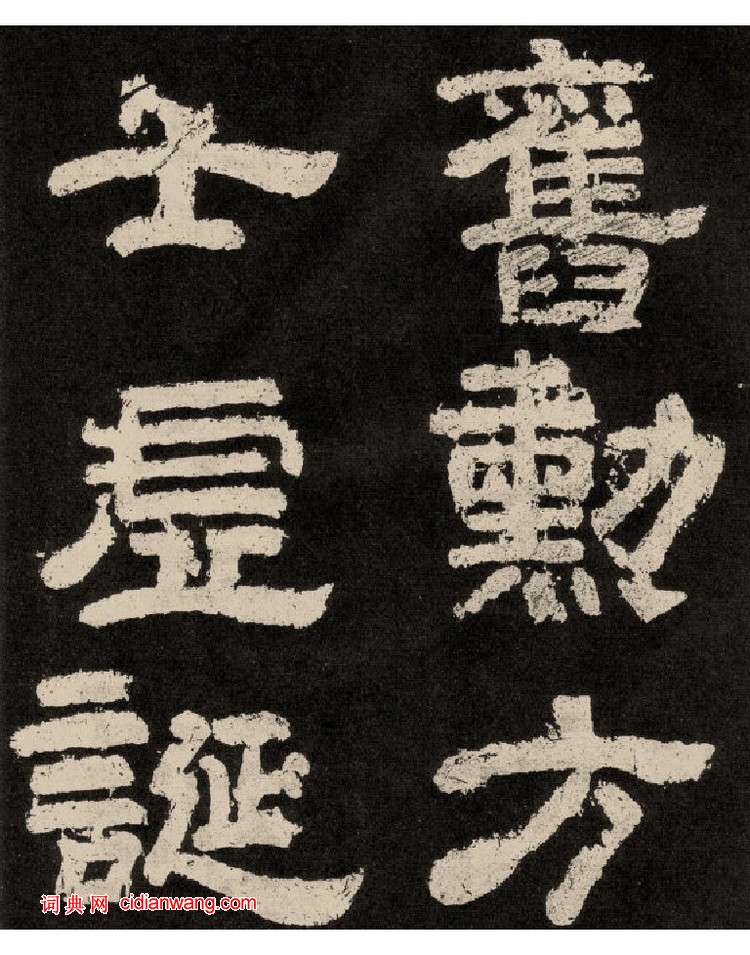 舊勳方
士虛誕
词典网 cidianwang.com